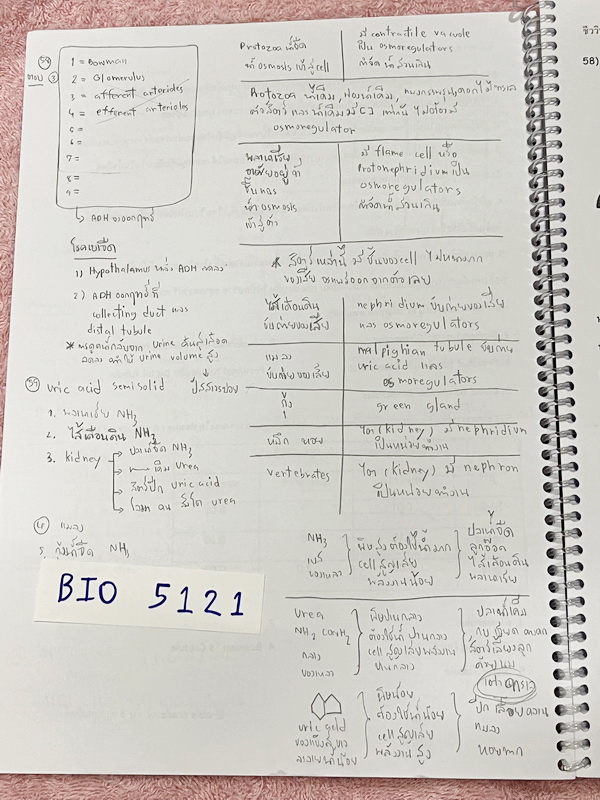 58
ตอบ 3
1 = Bowman
2 = Glomerulus
3 = afferent arterioles
4 = efferent arterioles
5 =
6 =
7 =
8 =
9 =
ADH ออกฤทธิ์
โรคเบาจืด
1) Hypothalamus หลั่ง ADH ลดลง
2) ADH ออกฤทธิ์ที่
collecting duct และ
distal tubule
ลดลง ทำให้ urine volume สูง
59 uric acid semisolid
1. พลานาเรีย NH3
2. ไส้เดือนดิน NH3
3. kidney
ปลาน้ำจืด NH3
เค็ม urea
สัตว์ปีก uric acid
คน urea
4 แมลง
5. กุ้งน้ำจืด NH3
BIO 5121
Protozoa น้ำจืด
น้ำ osmosis เข้าสู่ cell
มี contractile vacuole
เป็น osmoregulators
กำจัดน้ำส่วนเกิน
Protozoa น้ำเค็ม, ฟองน้ำเค็ม,
osmoregulator
พลานาเรีย,
อาศัยอยู่น้ำ
น้ำ osmosis
เข้าสู่ตัว
มี flame cell หรือ
Protonephridium เป็น
osmoregulators
กำจัดน้ำส่วนเกิน
* สัตว์เหล่านี้ มีชั้นของ cell ไม่หนามาก
ไส้เดือนดิน
ขับถ่ายของเสีย
nephridium ขับถ่ายของเสีย
และ osmoregulators
แมลง
ขับถ่ายของเสีย
malpighian tubule ขับถ่าย
uric acid และ
osmoregulators
กุ้ง
green gland
หมึก หอย
ไต (kidney) มี nephridium
เป็นหน่วยทำงาน
vertebrates
ไต (kidney) มี nephron
เป็นหน่วยทำงาน
NH3
เบส
ของเหลว
พิษสูง ต้องใช้น้ำมาก
cell สูญเสีย
พลังงานน้อย
ปลาน้ำจืด
ลูกอ๊อด
ไส้เดือนดิน
พลานาเรีย
urea
NH2 CONH2
กลาง
ของเหลว
พิษปานกลาง
ต้องใช้น้ำปานกลาง
cell สูญเสียพลังงาน
ปานกลาง
ปลาน้ำเค็ม
สัตว์เลี้ยงลูก
ด้วยนม
uric acid
ของแข็งสีขาว
ละลายน้ำน้อย
พิษน้อย
ต้องใช้น้ำน้อย
cell สูญเสีย
พลังงานสูง
ปีก เลื้อยคลาน
แมลง
หอยทาก
58)